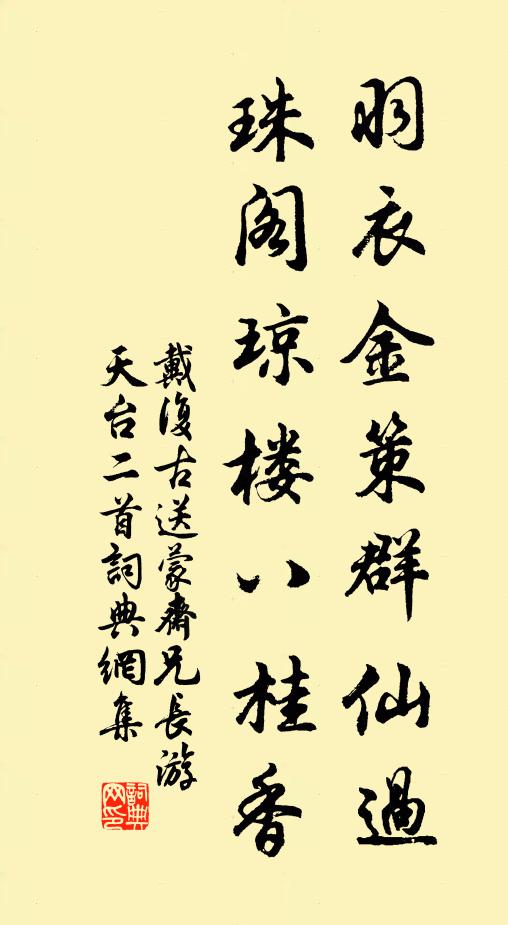 羽衣金策群仙過
珠阁琼楼八桂香
戴復古送蒙齋兄長游
天台二首詞典網集
詞典網印